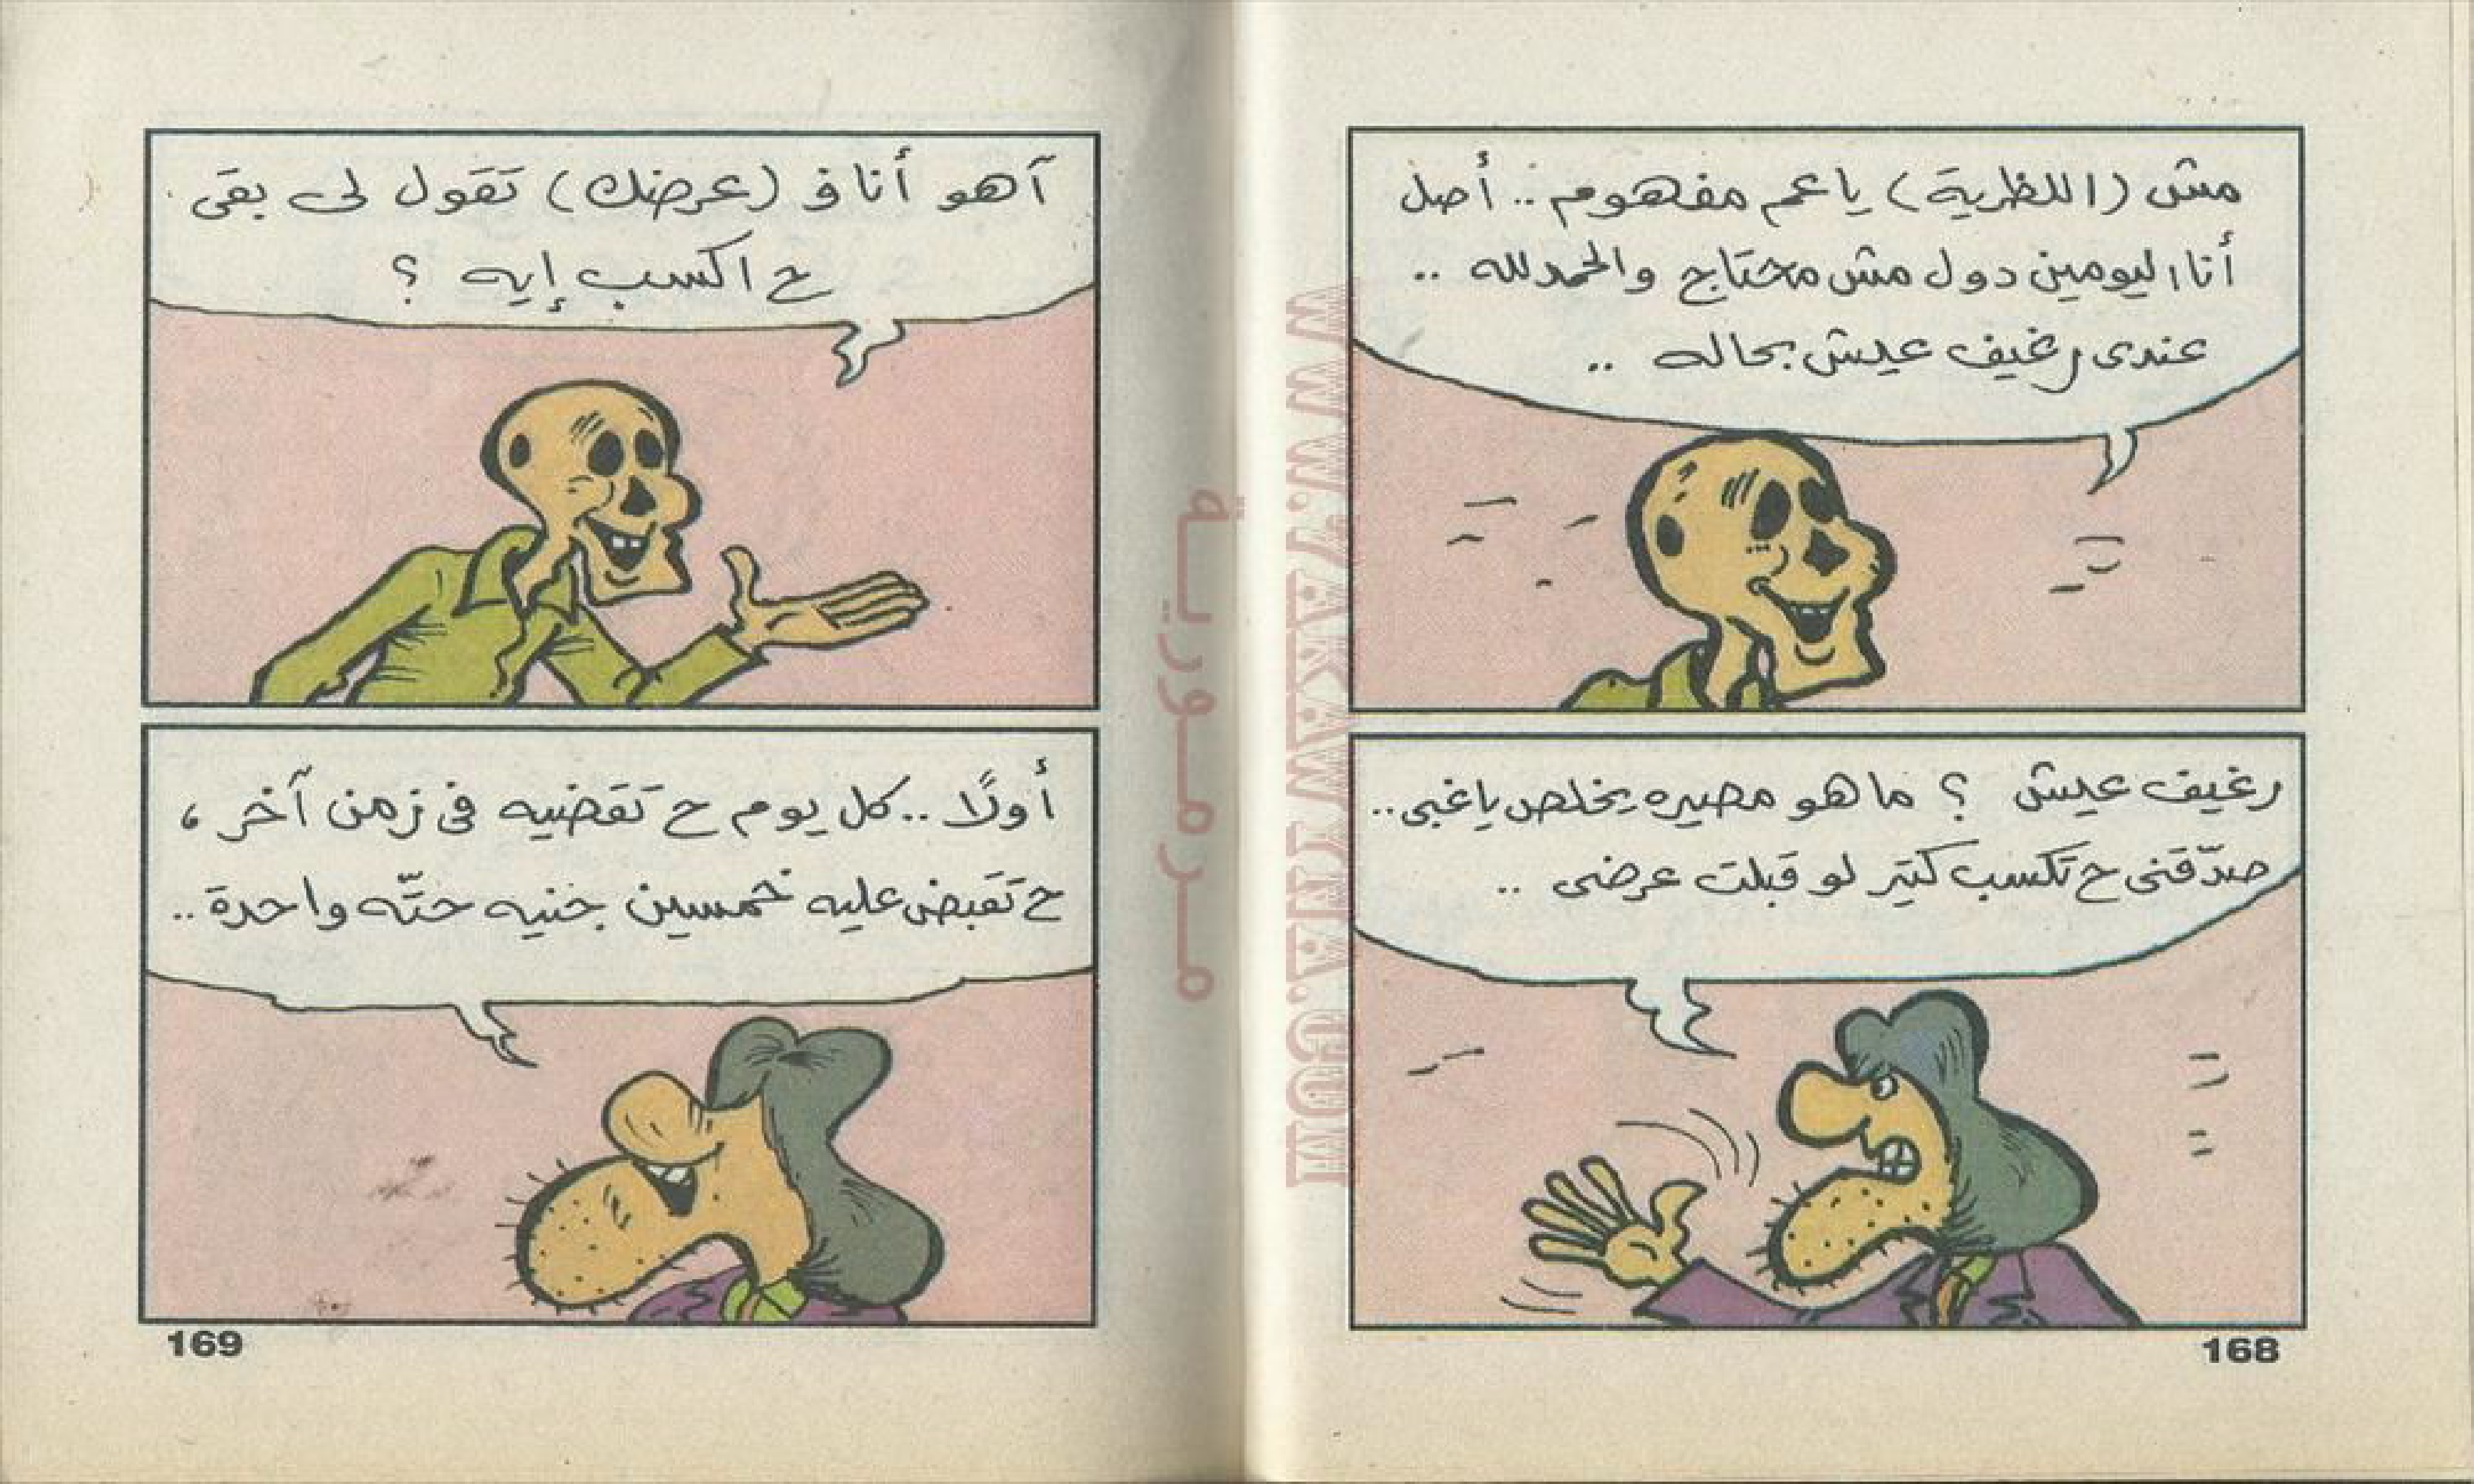 مش (اللظرية) ياعم مفهوم .. أصل
أنا اليومين دول مش محتاج والحمد لله ..
عندى رغيف عيش بحاله ..
رغيف عيش ؟ ما هو مصيره يخلص ياغبى ..
صدّقنى ح تكسب كتير لو قبلت عرضى ..
168
آهو أنا ف (عرضك) تقول لى بقى
ح اكسب إيه ؟
أولًا .. كل يوم ح تقضيه فى زمن آخر ،
ح تقبض عليه خمسين جنيه حتّه واحدة ..
169
مرمورية